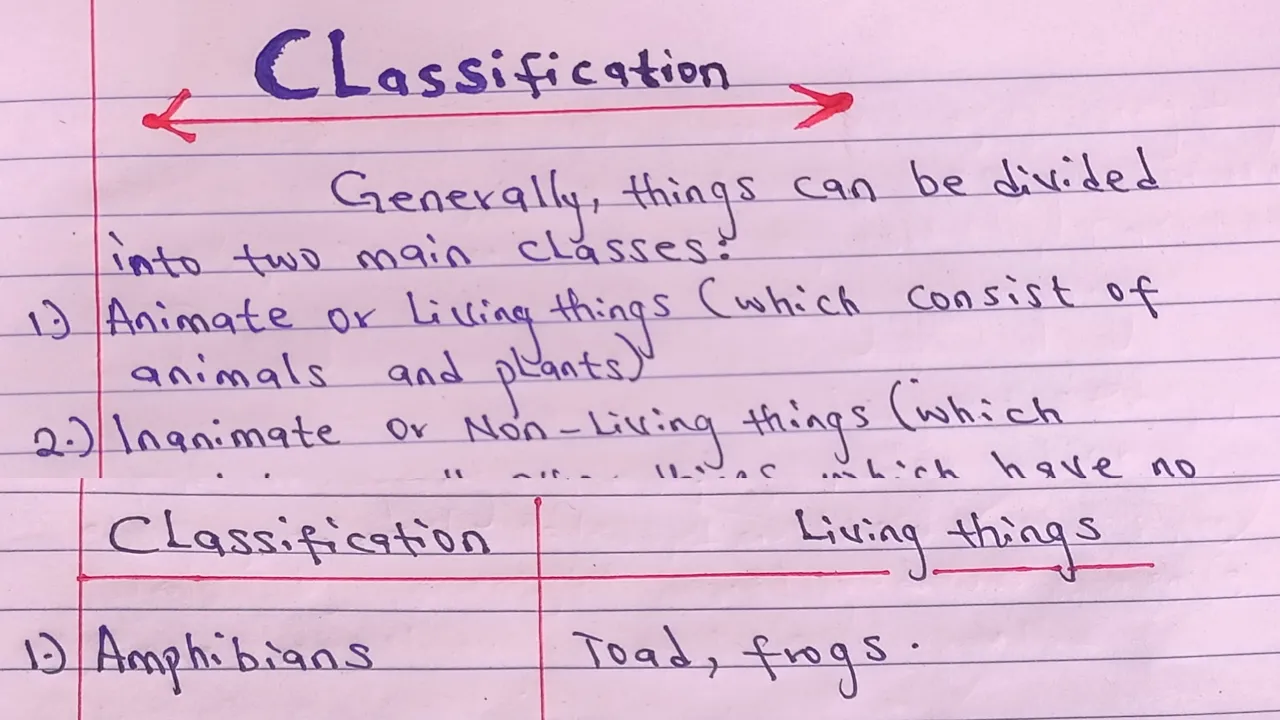 CLassification
Generally, things can be divided
into two main classes:
1.) Animate or Living things (which consist of
animals and plants)
2.) Inanimate or Non-Living things (which
which have no
Classification Living things
1.) Amphibians Toad, frogs.